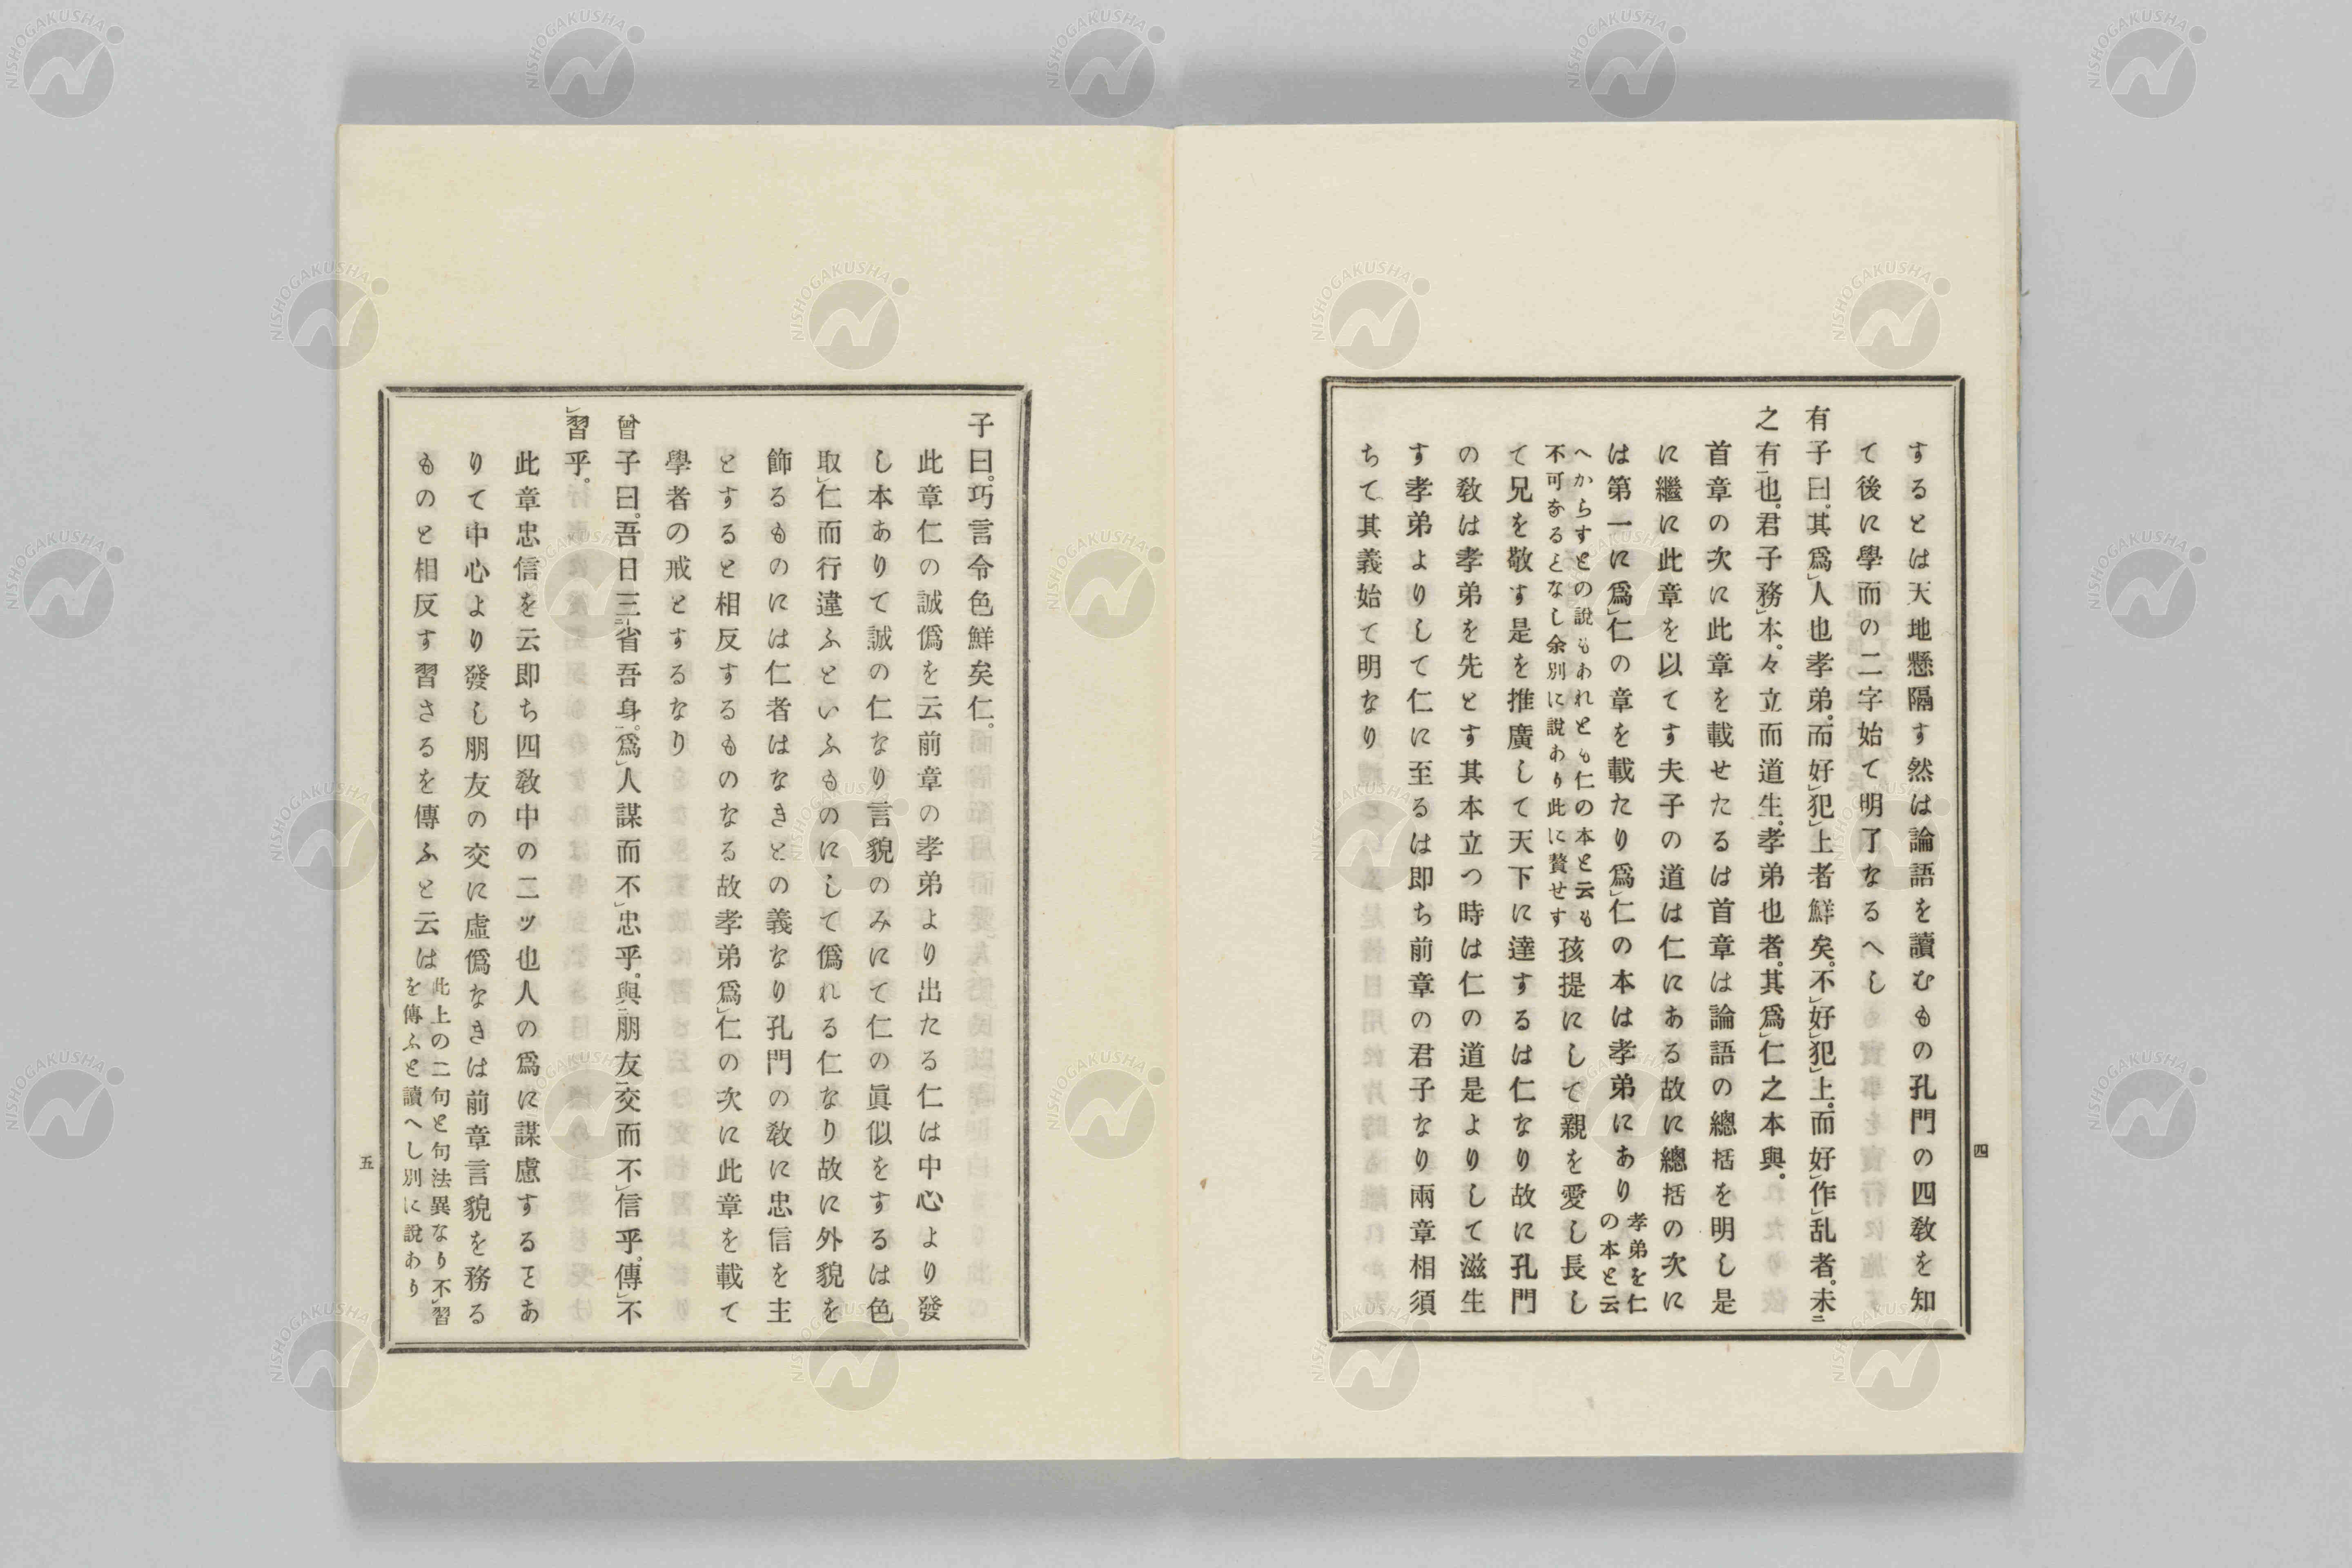 するとは天地懸隔す然は論語を讀むもの孔門の四敎を知
て後に學而の二字始て明了なるへし
有子曰。其爲㆑人也孝弟。而好㆑犯㆑上者鮮矣。不㆑好㆑犯㆑上。而好㆑作㆑乱者。未㆓
之有㆒也。君子務㆑本。々立而道生。孝弟也者。其爲㆑仁之本與。
首章の次に此章を載せたるは首章は論語の總括を明し是
に繼に此章を以てす夫子の道は仁にある故に總括の次に
は第一に爲㆑仁の章を載たり爲㆑仁の本は孝弟にあり孝弟を仁
の本と云
へからすとの說もあれとも仁の本と云も
不可なるとなし余別に說あり此に贅せす孩提にして親を愛し長し
て兄を敬す是を推廣して天下に達するは仁なり故に孔門
の敎は孝弟を先とす其本立つ時は仁の道是よりして滋生
す孝弟よりして仁に至るは即ち前章の君子なり兩章相須
ちて其義始て明なり
四
子曰。巧言令色鮮矣仁。
此章仁の誠僞を云前章の孝弟より出たる仁は中心より發
し本ありて誠の仁なり言貌のみにて仁の眞似をするは色
取㆑仁而行違ふといふものにして僞れる仁なり故に外貌を
飾るものには仁者はなきとの義なり孔門の敎に忠信を主
とすると相反するものなる故孝弟爲㆑仁の次に此章を載て
學者の戒とするなり
曾子曰。吾日三㆓省吾身㆒。爲㆑人謀而不㆑忠乎。與㆓朋友㆒交而不㆑信乎。傳㆑不
㆑習乎。
此章忠信を云即ち四敎中の二ッ也人の爲に謀慮するとあ
りて中心より發し朋友の交に虛僞なきは前章言貌を務る
ものと相反す習さるを傳ふと云は此上の二句と句法異なり不㆑習
を傳ふと讀へし別に說あり
五
NISHOGAKUSHA